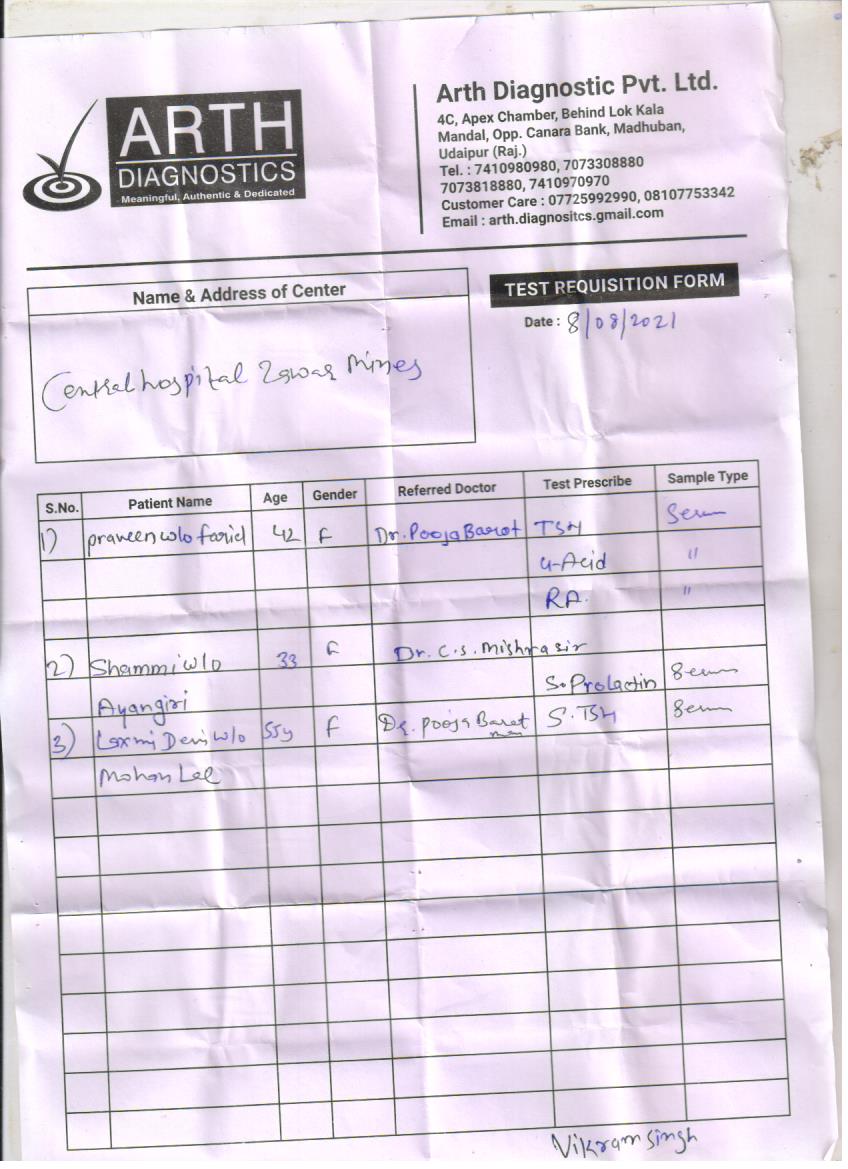 ARTH
DIAGNOSTICS
Meaningful, Authentic & Dedicated
Arth Diagnostic Pvt. Ltd.
4C, Apex Chamber, Behind Lok Kala
Mandal, Opp. Canara Bank, Madhuban,
Udaipur (Raj.)
Tel. : 7410980980, 7073308880
7073818880, 7410970970
Customer Care : 07725992990, 08107753342
Email : arth.diagnositcs.gmail.com
Name & Address of Center
Central hospital Zawar Mines
TEST REQUISITION FORM
Date : 8/08/2021
S.No. Patient Name Age Gender Referred Doctor Test Prescribe Sample Type
1) praveen w/o farid 42 F Dr. Pooja Barot TSH Serum
U-Acid "
RA. "
2) Shammi w/o 33 F Dr. C.S. Mishra sir
Ayangiri S. Prolactin Serum
3) Laxmi Devi w/o 55y F Dr. Pooja Barot S. TSH Serum
Mohan Lal
Vikram Singh